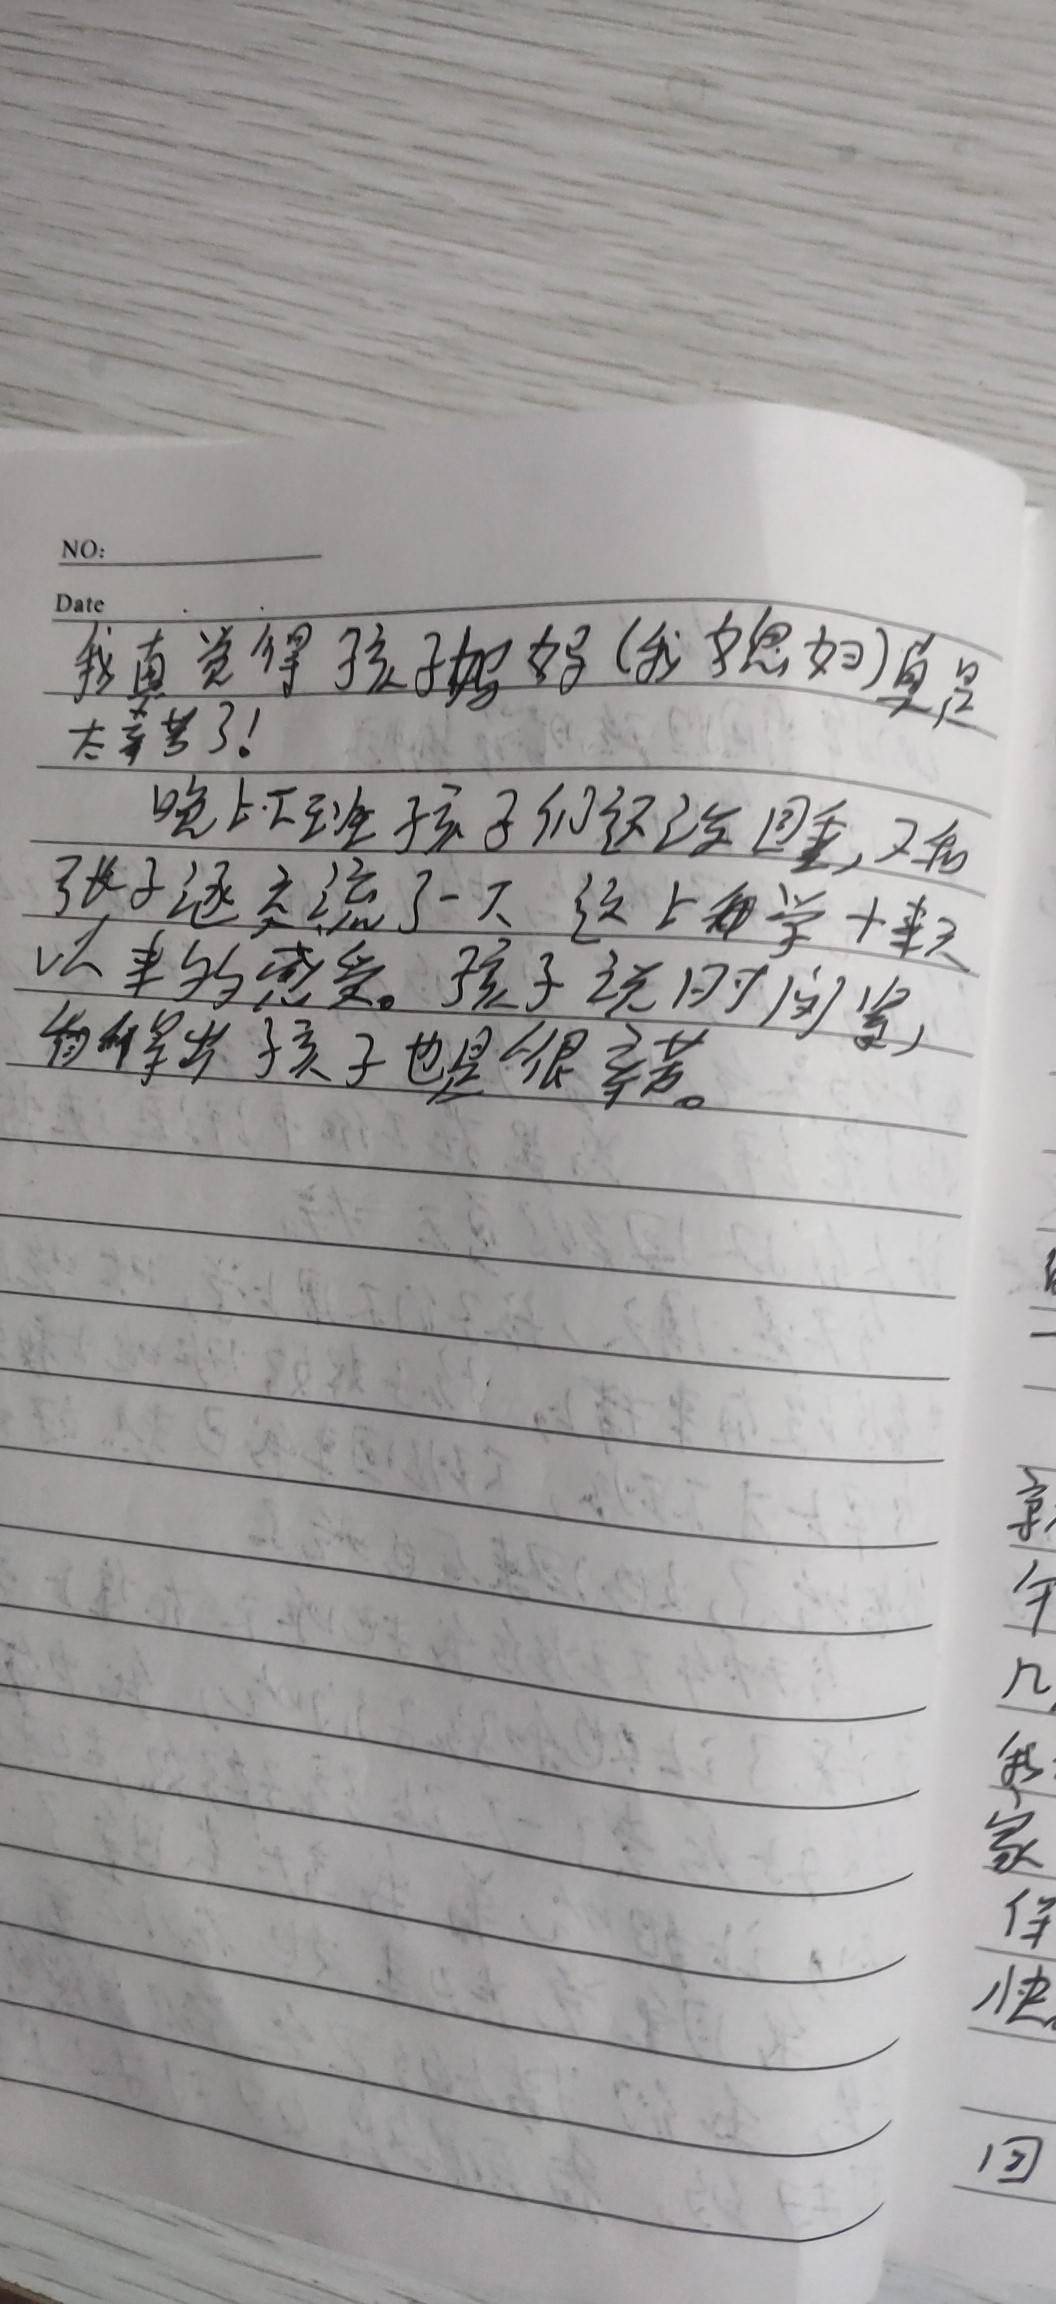 NO:
Date
我真觉得孩子妈妈(我媳妇)真是
太辛苦了!
晚上下班孩子们还没睡,又和
孩子逐交流了一下 这上开学十来天
以来的感受。孩子说时间紧,
看得出孩子也是很辛苦。
家
快
回